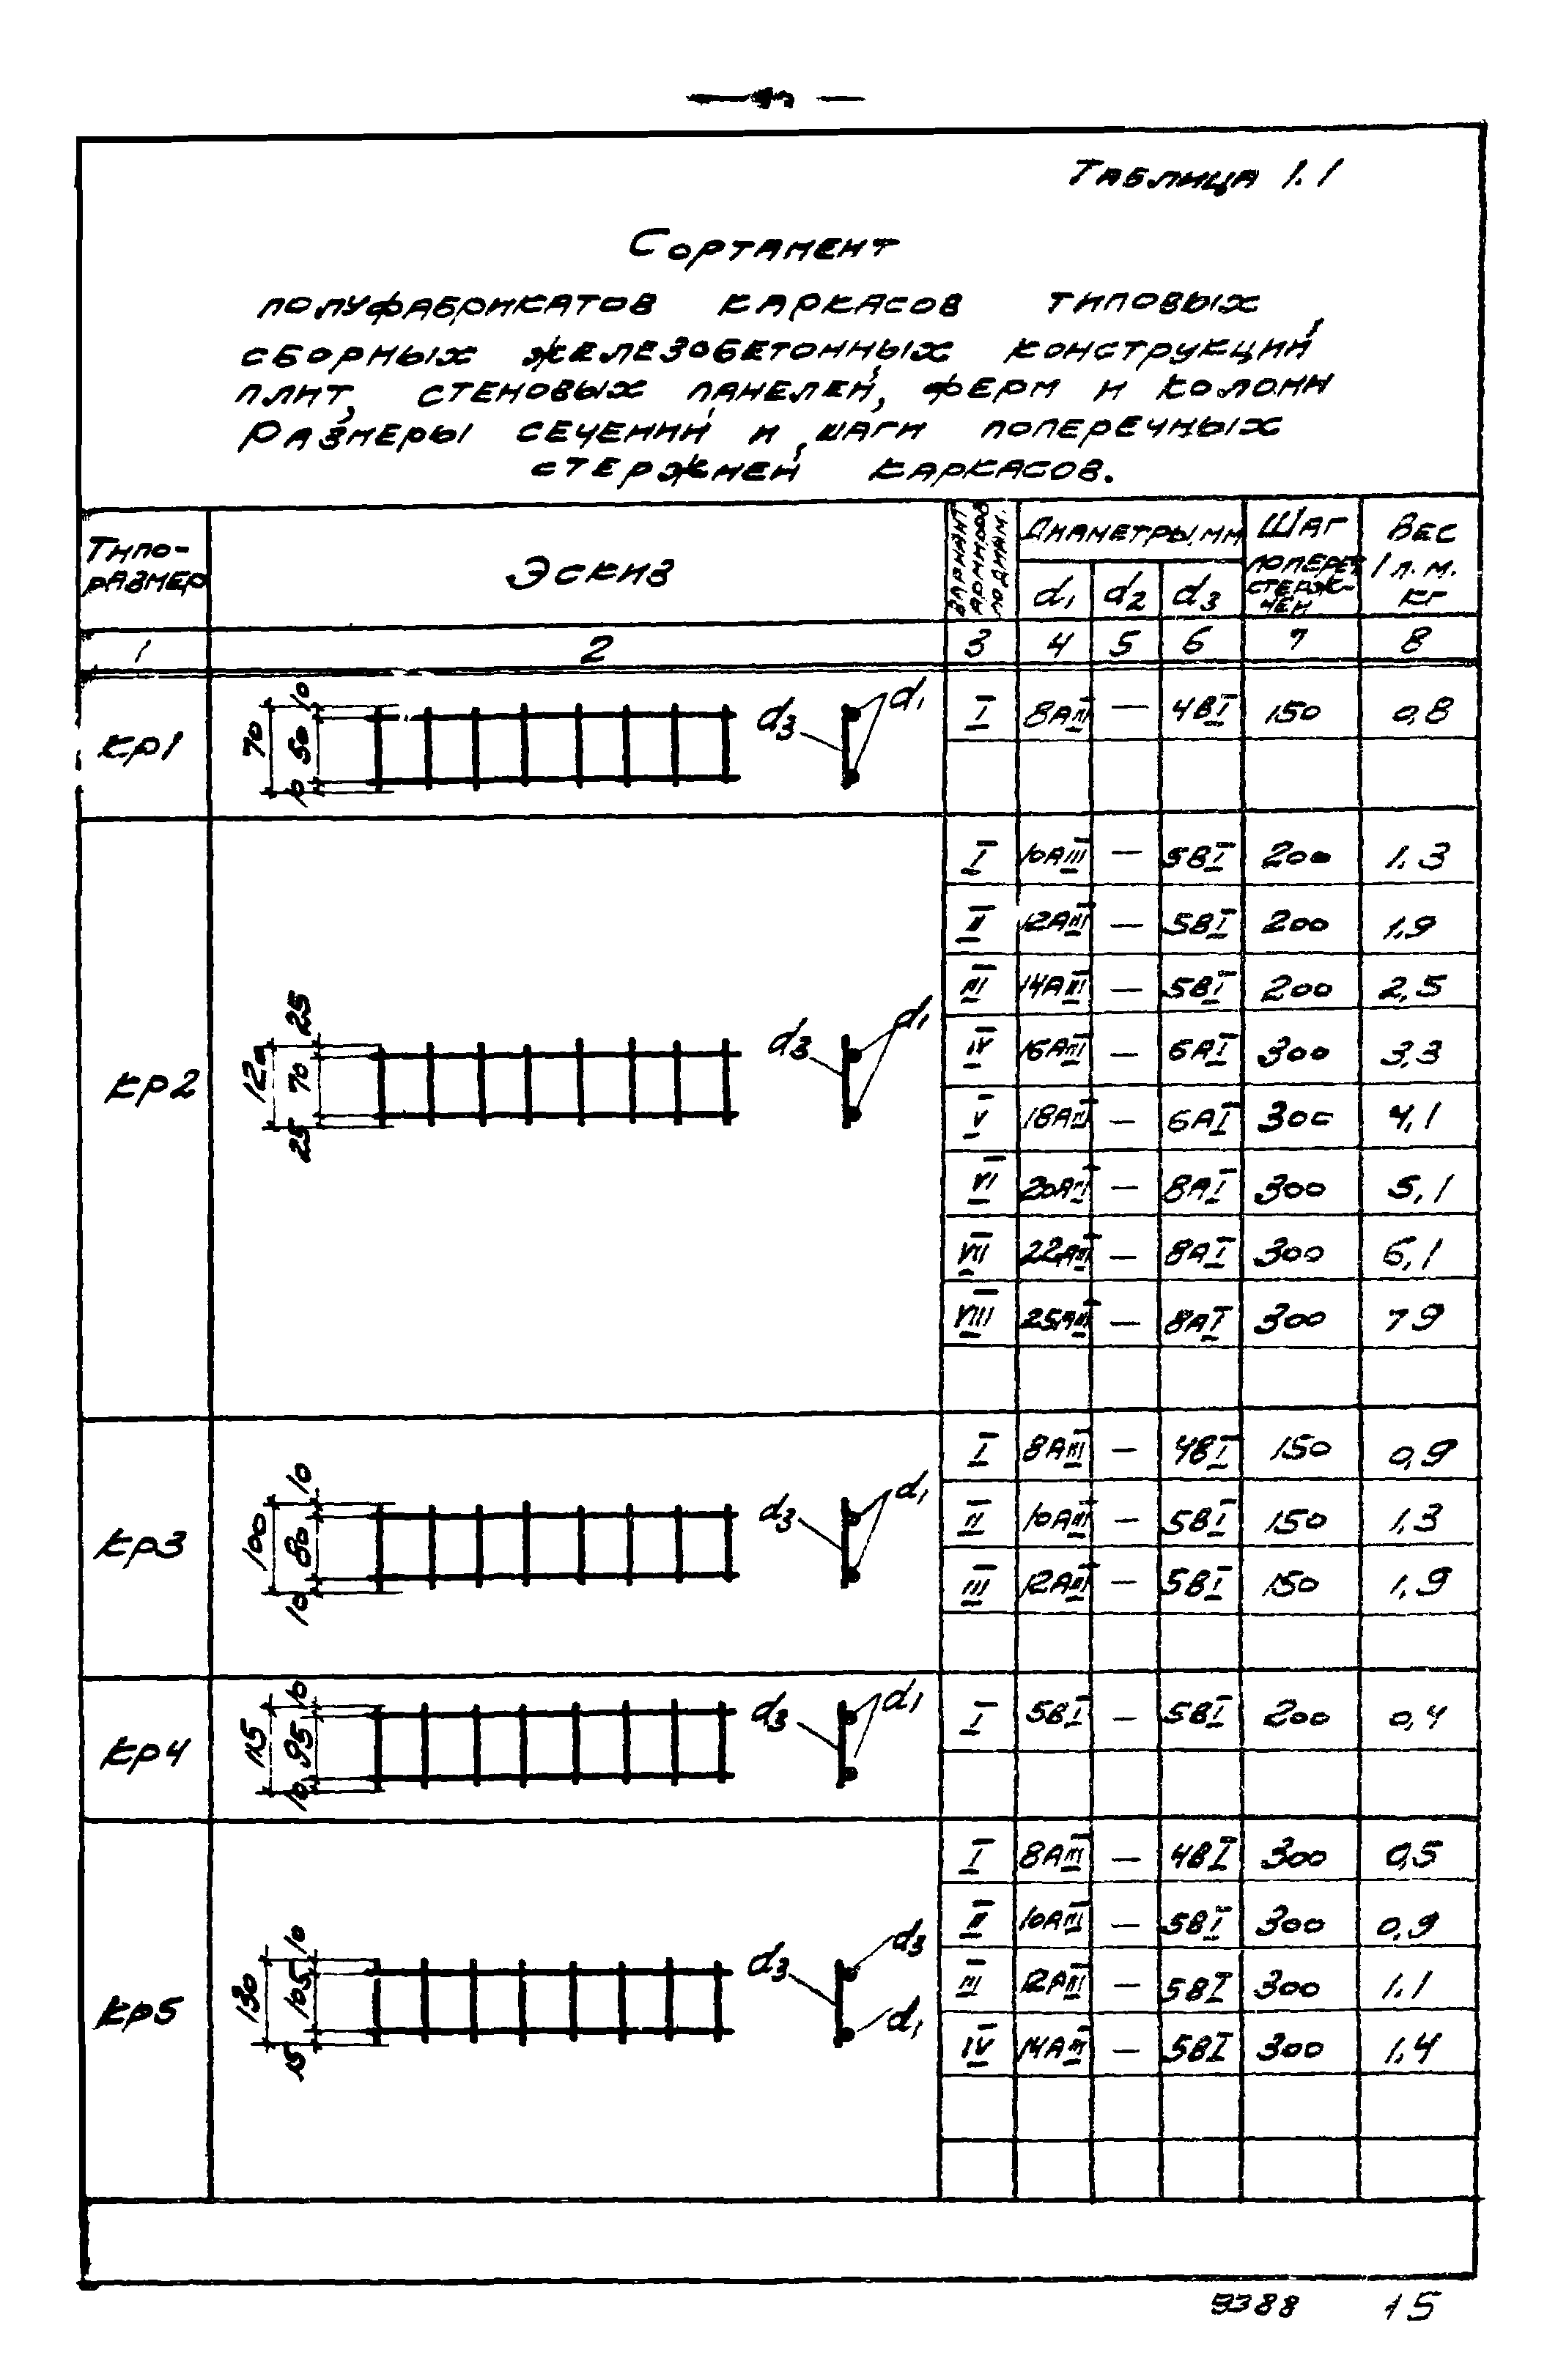 Таблица 1.1
Сортамент
полуфабрикатов каркасов типовых
сборных железобетонных конструкций
плит, стеновых панелей, ферм и колонн
Размеры сечений и шаги поперечных
стержней каркасов.
Типо-
размер
Эскиз
Вариант
армиров
по диам.
Диаметры, мм
d1 d2 d3
Шаг
попереч
стерж-
ней
Вес
1 п. м.
кг
1 2 3 4 5 6 7 8
КР1
70 10 50 10
d3 d1
I 8АIII — 4ВI 150 0,8
КР2
120 25 70 25
d3 d1
I 10АIII — 5ВI 200 1,3
II 12АIII — 5ВI 200 1,9
III 14АIII — 5ВI 200 2,5
IV 16АIII — 6АI 300 3,3
V 18АIII — 6АI 300 4,1
VI 20АIII — 8АI 300 5,1
VII 22АIII — 8АI 300 6,1
VIII 25АIII — 8АI 300 7 9
КР3
100 10 80 10
d3 d1
I 8АIII — 4ВI 150 0,9
II 10АIII — 5ВI 150 1,3
III 12АIII — 5ВI 150 1,9
КР4
115 10 95 10
d3 d1
I 5ВI — 5ВI 200 0,4
КР5
130 10 105 15
d3 d3
d1
I 8АIII — 4ВI 300 0,5
II 10АIII — 5ВI 300 0,9
III 12АIII — 5ВI 300 1.1
IV 14АIII — 5ВI 300 1,4
9388 15